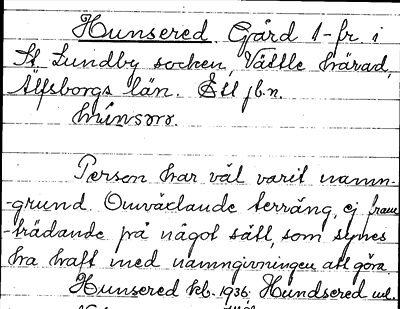 Hunsered. Gård 1-fr i
St. Lundby socken, Vättle härad,
Älfsborgs län. Ett jb.n.
hùnsərə.
Person har väl varit namn-
-grund. Omväxlande terräng, ej fram
-trädande på något sätt, som synes
ha haft med namngivningen att göra
Hunsered kb. 1936, Hundsered